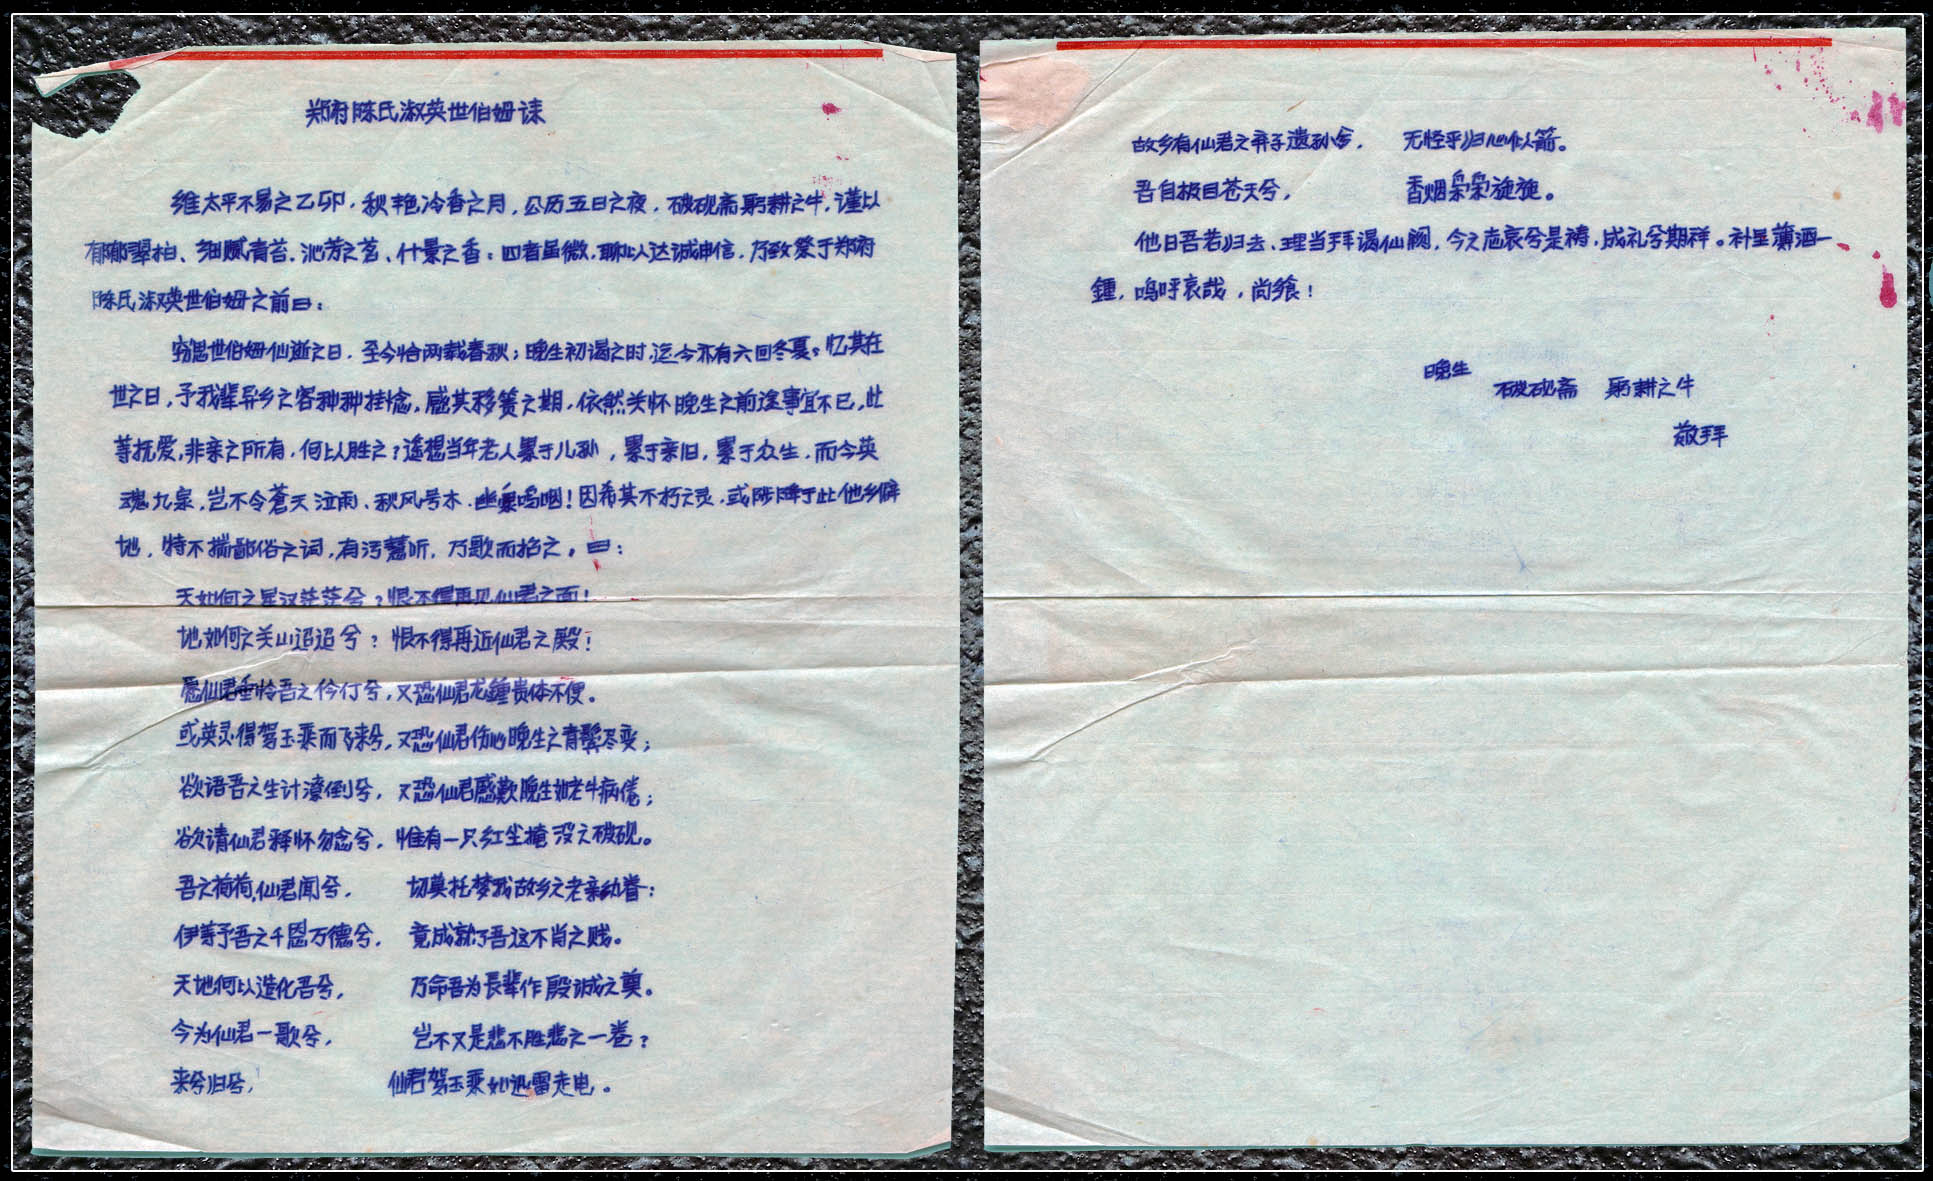 郑府陈氏淑英世伯姆诔
维太平不易之乙卯，秋艳冷香之月，公历五日之夜，破砚斋躬耕之牛，谨以
郁郁翠柏、细腻青苔、沁芳之茗、什景之香：四者虽微，聊以达诚申信，乃致祭于郑府
陈氏淑英世伯姆之前曰：
窃思世伯姆仙逝之日，至今恰两载春秋；晚生初谒之时，迄今亦有六回冬夏。忆其在
世之日，予我辈异乡之客种种挂念，感其移箦之期，依然关怀晚生之前途事宜不已，此
等抚爱，非亲之所有，何以胜之？遥想当年老人累于儿孙，累于亲旧，累于众生，而今英
魂九泉，岂不令蒼天泣雨、秋风号木、幽泉呜咽！因希其不朽之灵，或陟降于此他乡僻
地，特不揣鄙俗之词，有污慧听，乃歌而招之。曰：
天如何之星汉茫茫兮？恨不得再见仙君之面！
地如何之关山迢迢兮？恨不得再近仙君之殿！
愿仙君垂怜吾之伶仃兮，又恐仙君龙鍾贵体不便。
或英灵得驾玉乘而飞来兮，又恐仙君伤心晚生之青鬓尽变；
欲语吾之生计潦倒兮，又恐仙君感歎晚生如老牛病倦；
欲请仙君释怀勿念兮，惟有一只红尘掩没之破砚。
吾之荷荷，仙君闻兮，切莫托梦我故乡之老亲幼眷：
伊等予吾之千恩万德兮，竟成就了吾这不肖之贱。
天地何以造化吾兮，乃命吾为長辈作殷诚之奠。
今为仙君一歌兮，岂不又是悲不胜悲之一卷？
来兮归兮，仙君驾玉乘如迅雷走电。
故乡有仙君之弃子遗孙兮，无怪乎归心似箭。
吾自极目苍天兮，香烟枭枭旋旋。
他日吾若归去、理当拜谒仙阙，今之志哀兮是祷，成礼兮期祥。补呈薄酒一
鍾，呜呼哀哉，尚飨！
晚生
破砚斋 躬耕之牛
敬拜